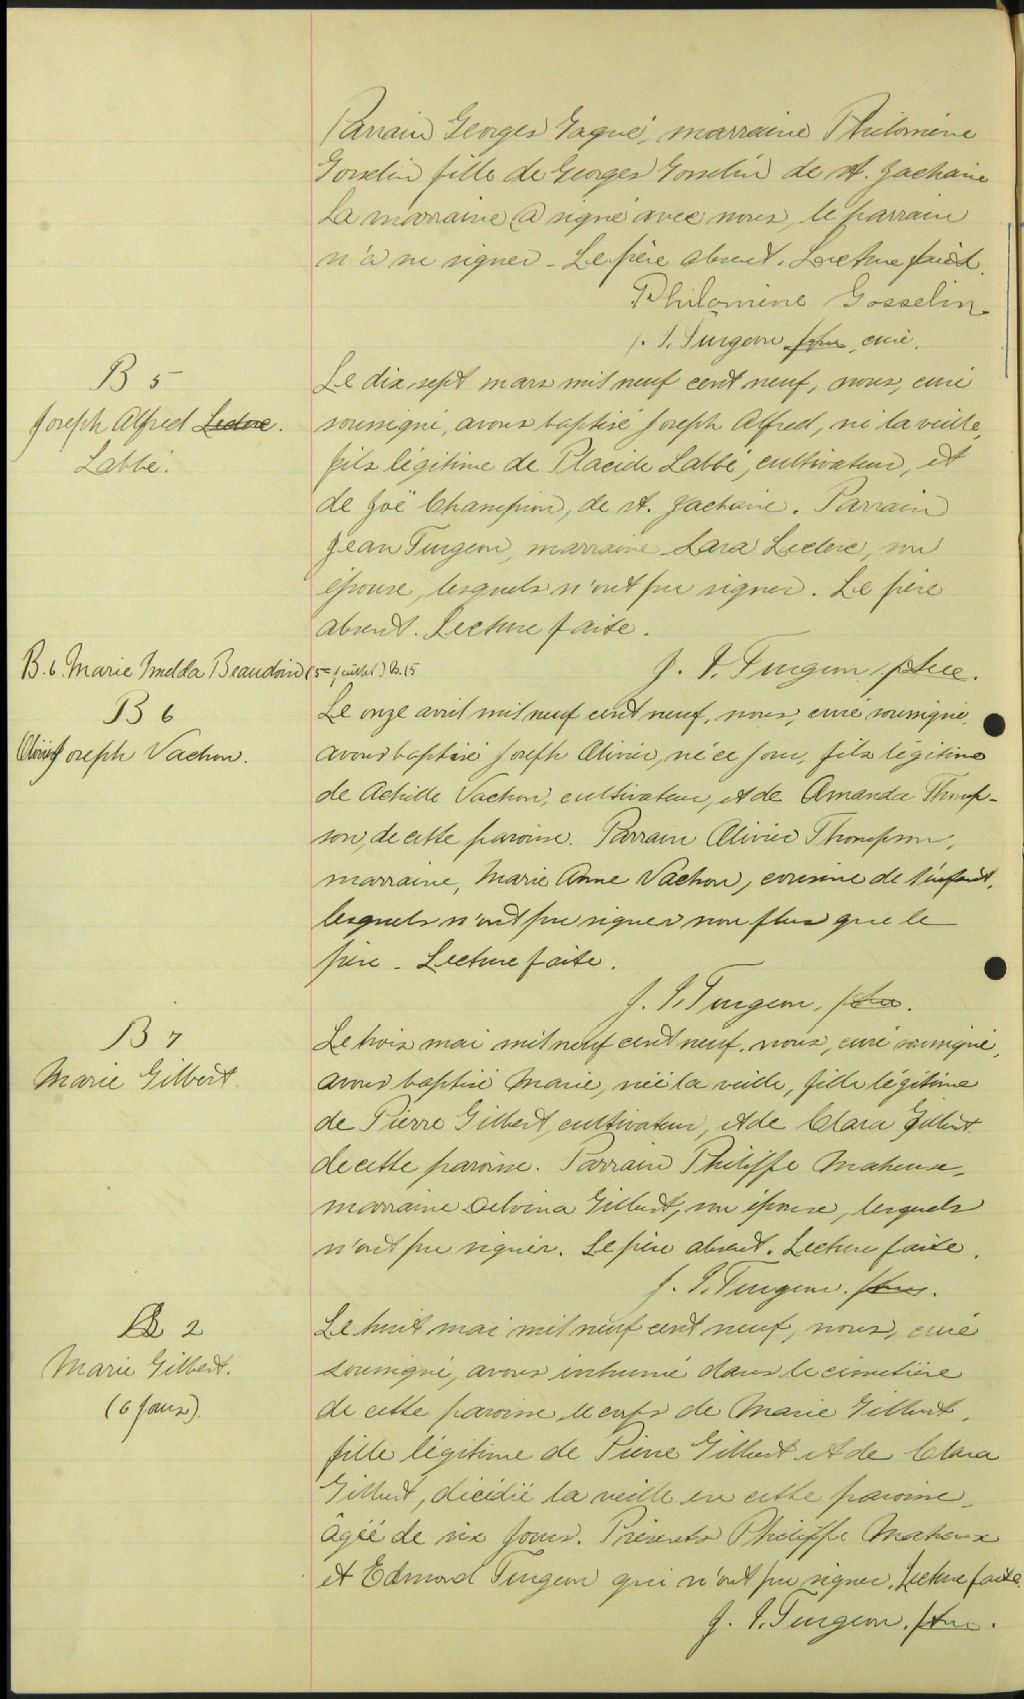 Parrain Georges Gagné, marraine Philomène
Gosselin fille de Georges Gosselin de St. Zacharie
La marraine a signé avec nous, le parrain
n'a su signer - Le père absent. Lecture faite.
Philomène Gosselin
J. P. Turgeon ptre, curé.
B 5
Joseph Alfred Leclerc.
Labbé.
Le dix-sept mars mil neuf cent neuf, nous, curé
soussigné, avons baptisé Joseph Alfred, né la veille,
fils légitime de Placide Labbé, cultivateur, et
de Zoë Champion, de St. Zacharie. Parrain
Jean Turgeon, marraine Clara Leclerc, son
épouse, lesquels n'ont pu signer. Le père
absent. Lecture faite.
J. P. Turgeon, ptre.
B. 6. Marie Imelda Beaudoin (5= juillet) B. 15
B 6
Olivier Joseph Vachon.
Le onze avril mil neuf cent neuf, nous, curé soussigné,
avons baptisé Joseph Olivier, né ce jour, fils légitime
de Achille Vachon, cultivateur, et de Amanda Thomp-
son, de cette paroisse. Parrain Olivier Thompson,
marraine, Marie Anne Vachon, cousine de l'enfant,
lesquels n'ont pu signer non plus que le
père - Lecture faite.
J. P. Turgeon, ptre.
B 7
Marie Gilbert.
Le trois mai mil neuf cent neuf, nous, curé soussigné,
avons baptisé Marie, née la veille, fille légitime
de Pierre Gilbert, cultivateur, et de Clara Gilbert
de cette paroisse. Parrain Philippe Maheux,
marraine Delvina Gilbert, son épouse, lesquels
n'ont pu signer. Le père absent. Lecture faite.
J. P. Turgeon. ptre.
S 2
Marie Gilbert.
(6 jours).
Le huit mai mil neuf cent neuf, nous, curé
soussigné, avons inhumé dans le cimetière
de cette paroisse le corps de Marie Gilbert,
fille légitime de Pierre Gilbert et de Clara
Gilbert, décédée la veille en cette paroisse,
âgée de six jours. Présents Philippe Maheux
et Edmond Turgeon qui n'ont pu signer. Lecture faite.
J. P. Turgeon. ptre.